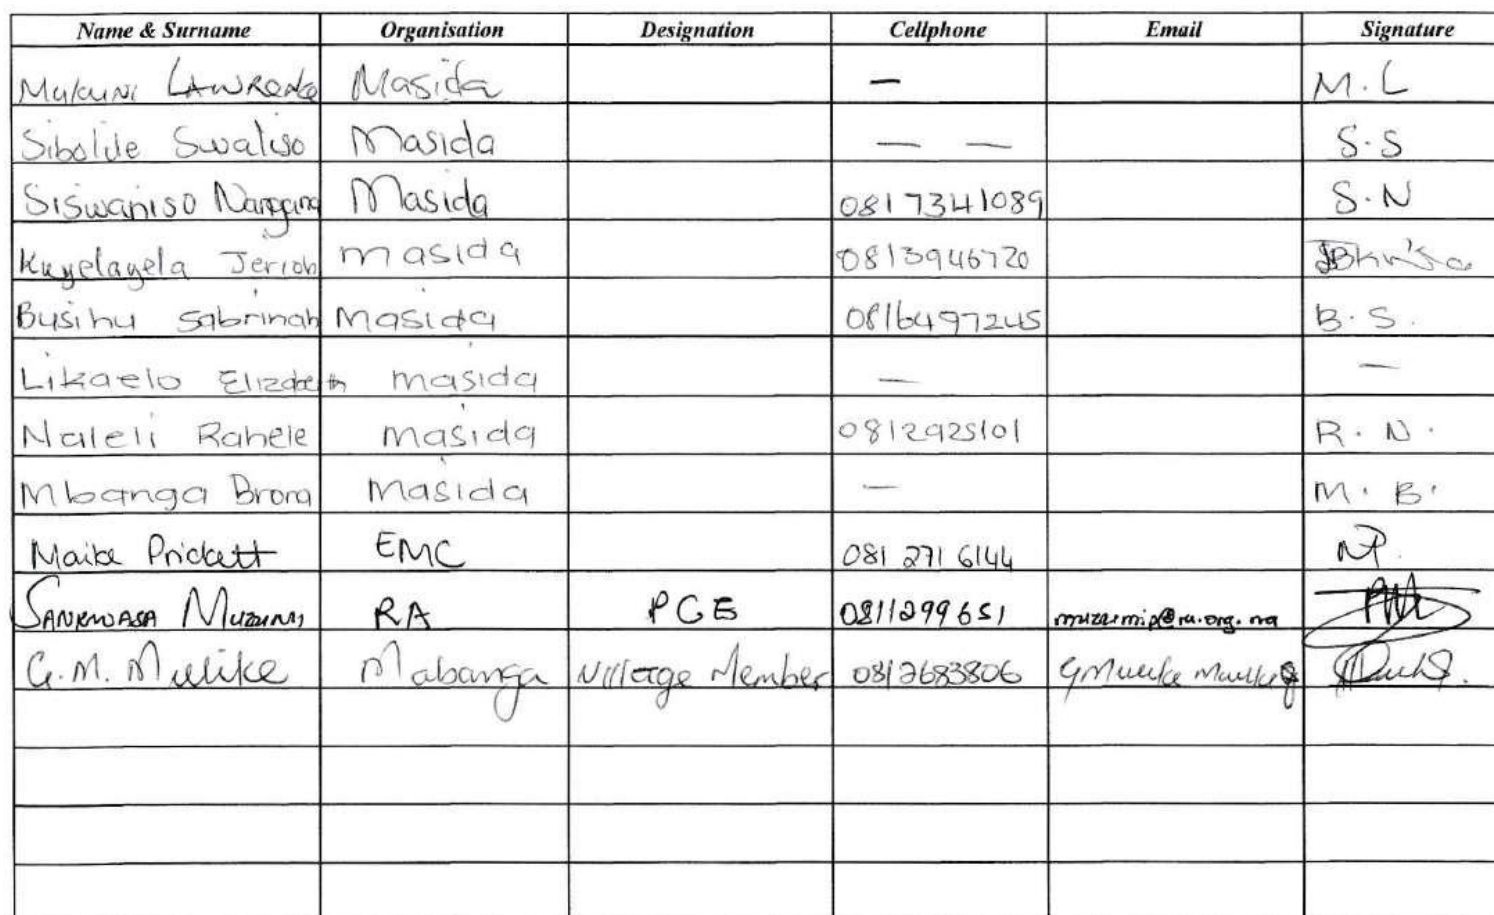 Name & Surname Organisation Designation Cellphone Email Signature
Mukuni Lawrence Masida — M.L
Sibolile Swaliso Masida — — S.S
Siswaniso Masida 0817341089 S.N
Kuyelayela Jerioh masida 0813946720
Busihu Sabrinah Masida 0816497245 B.S.
Likaelo Elizabeth masida — —
Naleli Rahele masida 0812925101 R.N.
Mbanga Brona masida — M.B.
Maike Prickett EMC 081 271 6144 MP.
Sankwasa Muzumi RA PGE 0811299651 muzumip@ra.org.na
G.M. Mulike Mabanga Village Member 0812683806